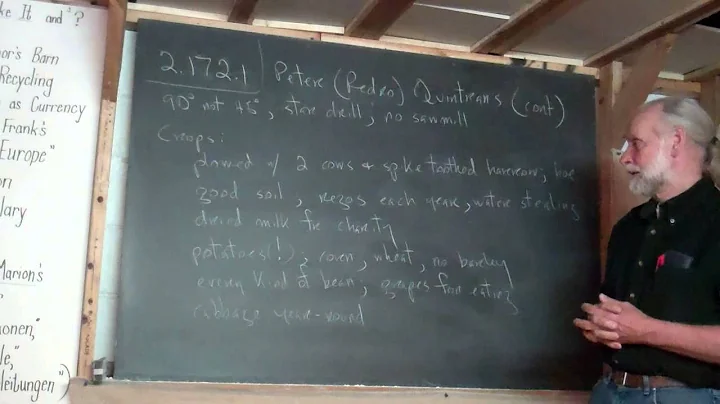 ke It and ?
or's Barn
Recycling
as Currency
Frank's
Europe"
ori
lary
Marion's
"
onen,"
le,"
leitungen")
2.172.1 Peter (Pedro) Quintreans (cont)
90° not 45°, store drill, no sawmill
Crops:
plowed w/ 2 cows + spike toothed harrow; hoe
good soil, rezos each year, water stealing
dried milk for charity
potatoes(!); corn, wheat, no barley
every kind of bean, grapes for eating
cabbage year-round